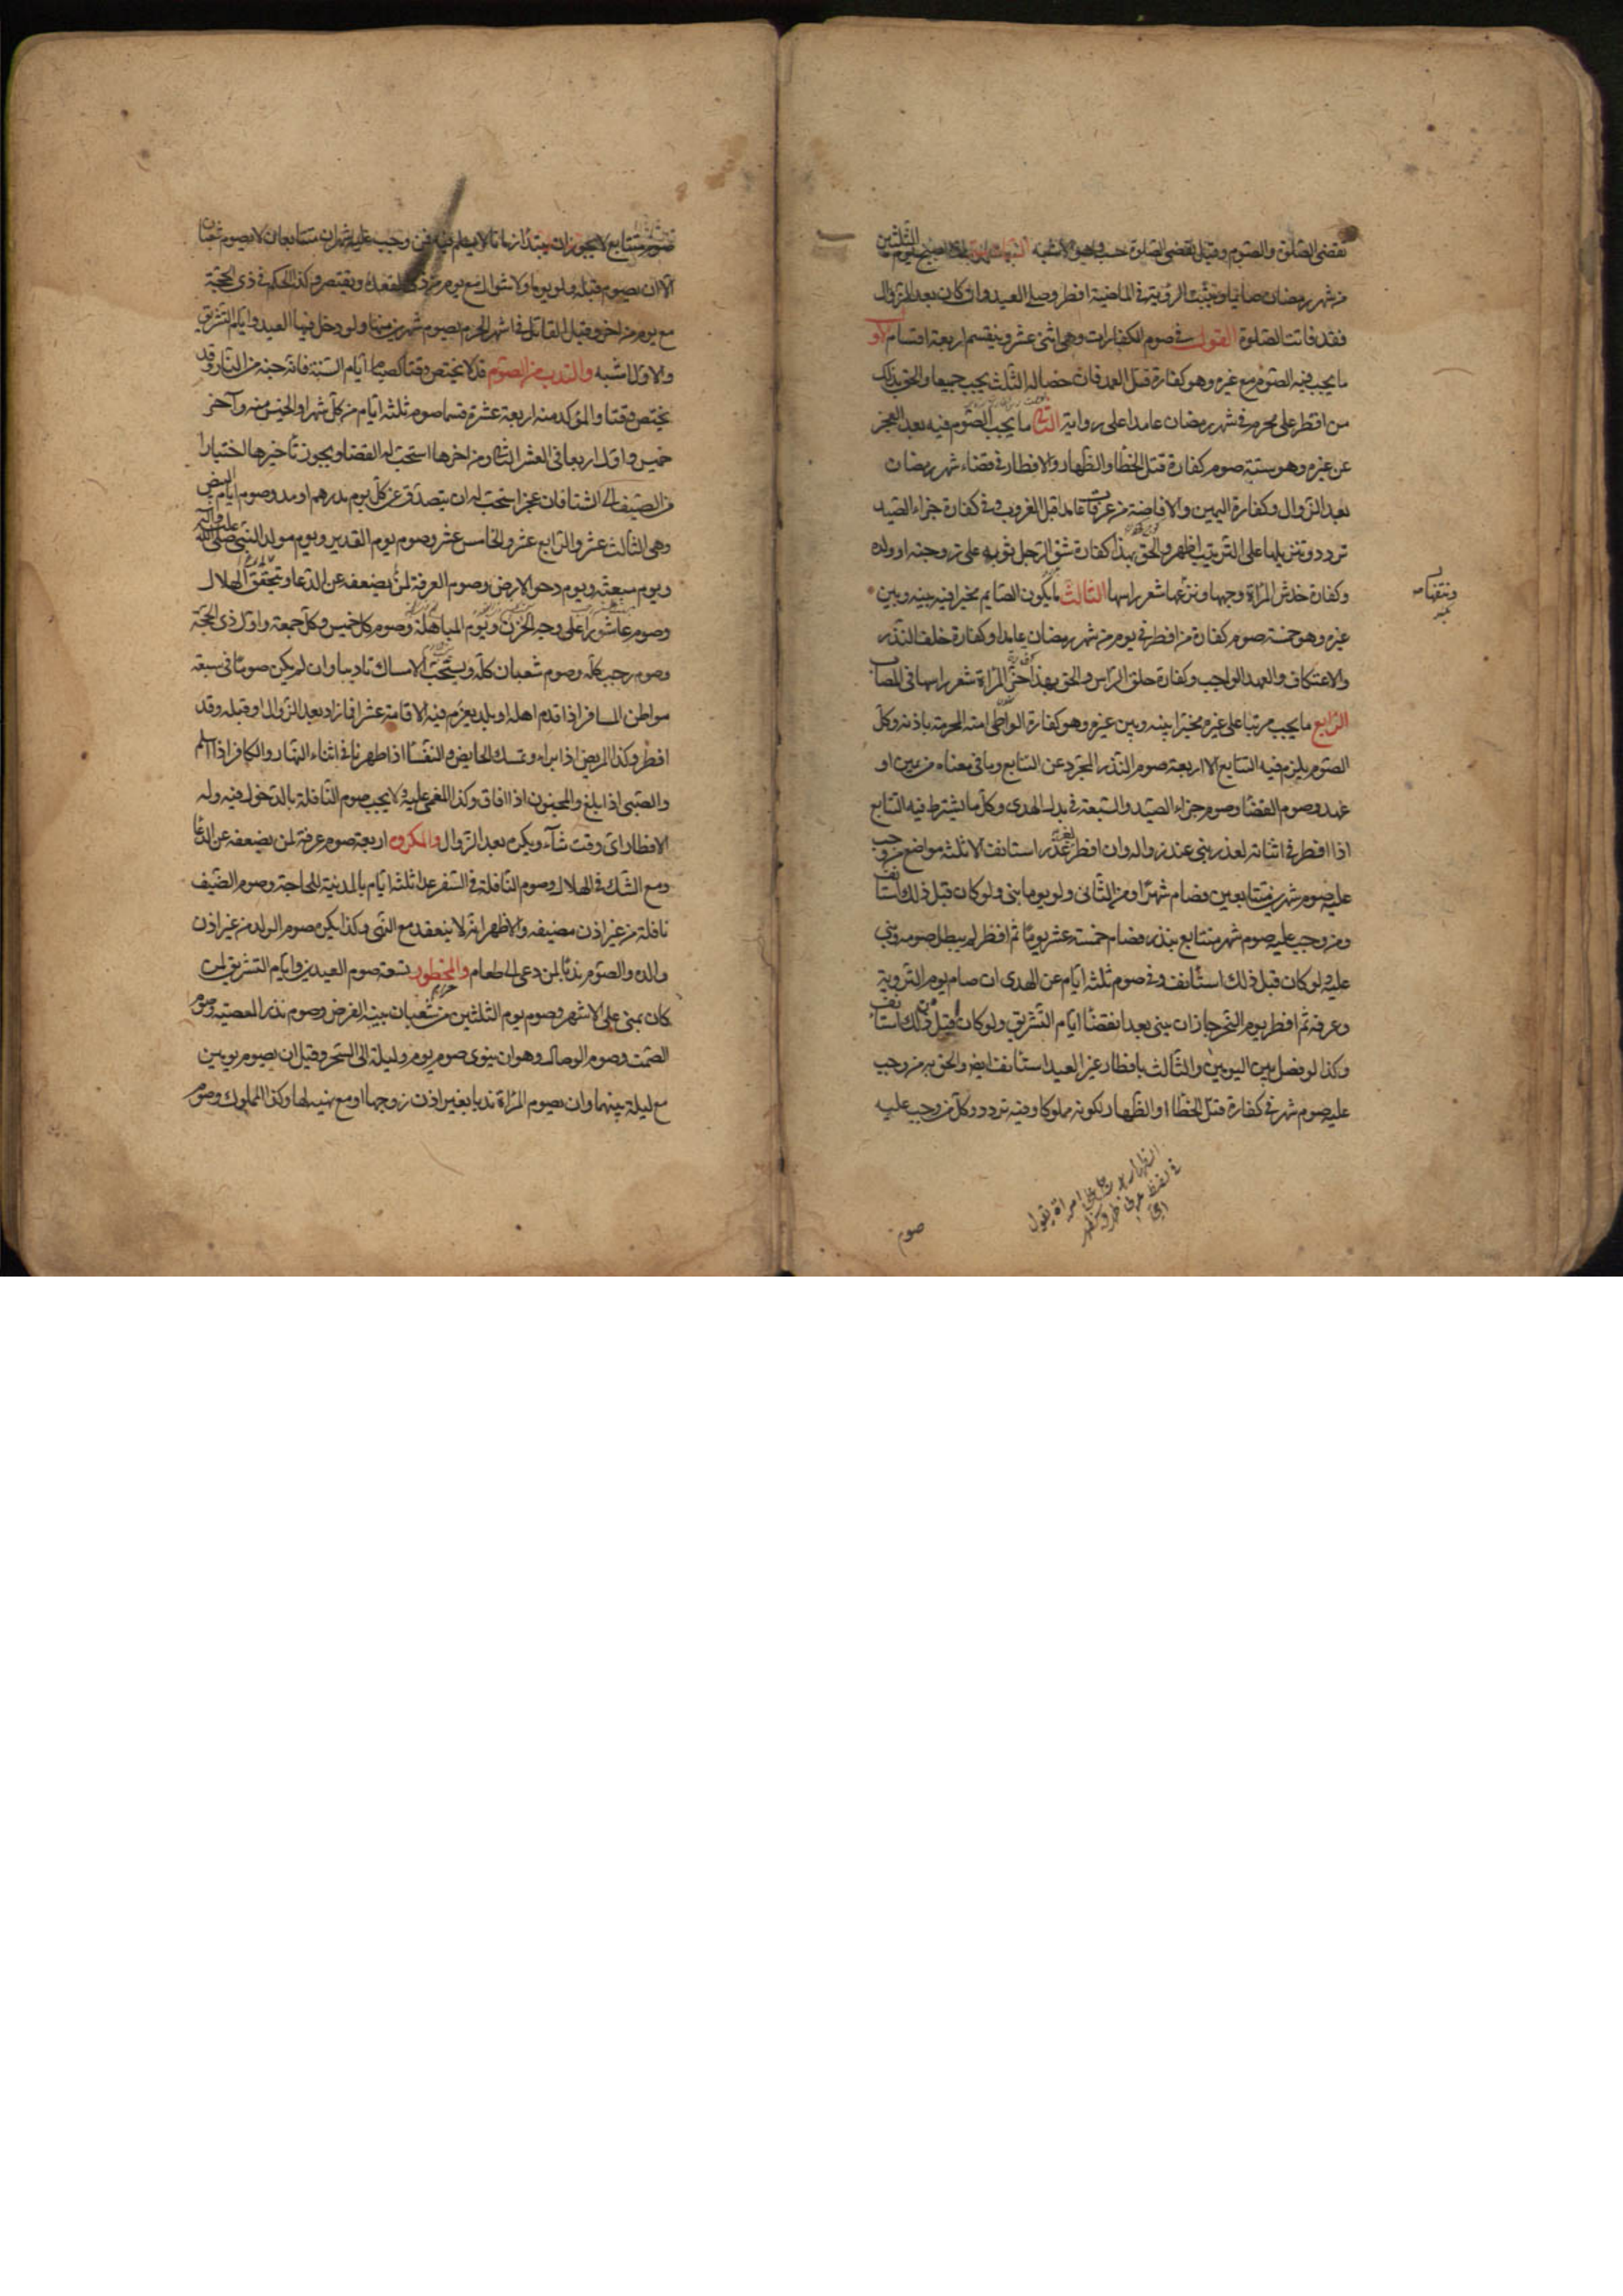 تقضى الصلوة والصوم وقيل تقضى الصلوة حسب وهو الاشبه الثالثة اذا اصبح يوم الثلثين
من شهر رمضان صائما وثبتت الرؤية في الماضية افطر وصلى العيد وان كان بعد الزوال
فقد فاتت الصلوة القول في صوم الكفارات وهي اثنى عشر وينقسم اربعة اقسام الاول
ما يجب فيه الصوم مع غيره وهو كفارة قتل العمد فان خصاله الثلث يجب جميعا والحق بذلك
من افطر على محرم في شهر رمضان عامدا على رواية الثاني ما يجب الصوم فيه بعد العجز
عن غيره وهو ستة صوم كفارة قتل الخطا والظهار والافطار في قضاء شهر رمضان
بعد الزوال وكفارة اليمين والافاضة من عرفات عامدا قبل الغروب وفي كفارة جزاء الصيد
تردد وتنزيلها على الترتيب اظهر والحق بهذا كفارة شق الرجل ثوبه على زوجته او ولده
وكفارة خدش المراة وجهها ونتفها شعر راسها الثالث ما يكون الصايم مخيرا فيه بينه وبين
غيره وهو خمسة صوم كفارة من افطر في يوم من شهر رمضان عامدا وكفارة خلف النذر
والاعتكاف والعهد الواجب وكفارة حلق الراس والحق بهذا جز المراة شعر راسها في المصاب
الرابع ما يجب مرتبا على غيره مخيرا بينه وبين غيره وهو كفارة الواطى امته المحرمة باذنه وكل
الصوم يلزم فيه التتابع الا اربعة صوم النذر المجرد عن التتابع وما في معناه من يمين او
عهد وصوم القضا وصوم جزاء الصيد والسبعة في بدل الهدى وكل ما يشترط فيه التتابع
اذا افطر في اثنائه لعذر بنى عند زواله وان افطر لغير عذر استانف الا ثلثة مواضع من وجب
عليه صوم شهرين متتابعين فصام شهرا ومن الثاني ولو يوما بنى ولو كان قبل ذلك استانف
ومن وجب عليه صوم شهر متتابع بنذر فصام خمسة عشر يوما ثم افطر لم يبطل صومه وبنى
عليه ولو كان قبل ذلك استانف وفي صوم ثلثة ايام عن الهدى ان صام يوم التروية
وعرفة ثم افطر يوم النحر جاز ان يبنى بعد انقضا ايام التشريق ولو كان قبل ذلك استانف
وكذا لو فصل بين اليومين والثالث بافطار غير العيد استانف ايض والحق به من وجب
عليه صوم شهر في كفارة قتل الخطا او الظهار لكونه مملوكا وفيه تردد وكل من وجب عليه
صوم
ونتفها
صوم متتابع لا يجوز ان يبتدأ زمانا لا يسلم فيه فمن وجب عليه شهران متتابعان لا يصوم شعبان
الا ان يصوم قبله ولو يوما ولا شوال مع يوم من ذي القعدة ويقتصر وكذا الحكم في ذي الحجة
مع يوم من اخر وقيل القاتل في اشهر الحرم يصوم شهرين منها ولو دخل فيهما العيد وايام التشريق
والاول اشبه والندب من الصوم قد لا يختص وقتا كصيام ايام السنة فانه جنة من النار وقد
يختص وقتا والمؤكد منه اربعة عشر قسما صوم ثلثة ايام من كل شهر اول خميس منه وآخر
خميس واول اربعا في العشر الثاني ومن اخرها استحب له القضا ويجوز تاخيرها اختيارا
من الصيف الى الشتا فان عجز استحب له ان يتصدق عن كل يوم بدرهم او مد وصوم ايام البيض
وهي الثالث عشر والرابع عشر والخامس عشر وصوم يوم الغدير ويوم مولد النبى صلى الله عليه وآله
ويوم مبعثه ويوم دحو الارض وصوم العرفة لمن لم يضعفه عن الدعا وتحقق الهلال
وصوم عاشورا على وجه الحزن ويوم المباهلة وصوم كل خميس وكل جمعة واول ذي الحجة
وصوم رجب كله وصوم شعبان كله ويستحب الامساك تاديبا وان لم يكن صوما في سبعة
مواطن المسافر اذا قدم اهله او بلد يعزم فيه الاقامة عشرا فما زاد بعد الزوال او قبله وقد
افطر وكذا المريض اذا براء وتمسك الحايض والنفسا اذا طهرتا في اثناء النهار والكافر اذا اسلم
والصبى اذا بلغ والمجنون اذا افاق وكذا المغمى عليه ولا يجب صوم النافلة بالدخول فيه وله
الافطار اى وقت شاء ويكره بعد الزوال والمكروه اربعة صوم عرفة لمن يضعفه عن الدعا
ومع الشك في الهلال وصوم النافلة في السفر عدا ثلثة ايام بالمدينة للحاجة وصوم الضيف
نافلة من غير اذن مضيفه والاظهر انه لا ينعقد مع النهى وكذا يكره صوم الولد من غير اذن
والده والصوم ندبا لمن دعى الى طعام والمحظور تسعة صوم العيدين وايام التشريق لمن
كان بمنى على الاشهر وصوم يوم الثلثين من شعبان بنية الفرض وصوم نذر المعصية وصوم
الصمت وصوم الوصال وهو ان ينوى صوم يوم وليلة الى السحر وقيل ان يصوم يومين
مع ليلة بينهما وان يصوم المراة ندبا بغير اذن زوجها او مع نهيه لها وكذا المملوك وصوم